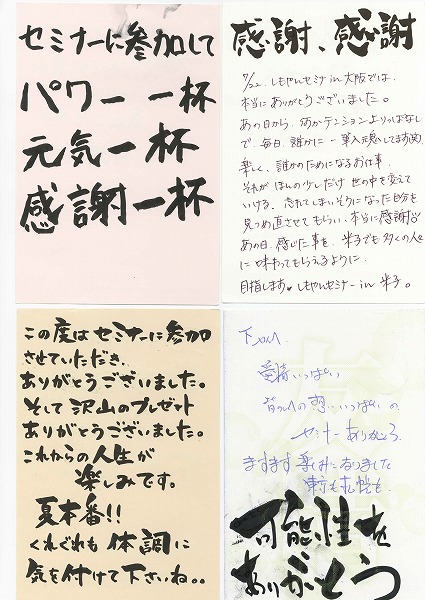 セミナーに参加して
パワー一杯
元気一杯
感謝一杯
感謝、感謝
7/22.しもやんセミナin大阪では、
本当にありがとうございました。
あの日から、何かテンションよりっぱなし
で、毎日、誰かに一筆入魂してます(笑)
楽しく、誰かのためになるお仕事
それがほんの少しだけ世の中を変えて
いける。忘れてしまいそうになった自分を
見つめ直させてもらい、本当に感謝です
あの日、感じた事を、米子でも多くの人に
味わってもらえるように
目指します。しもやんセミナーin米子。
この度はセミナーに参加
させていただき、
ありがとうございました。
そして沢山のプレゼント
ありがとうございました。
これからの人生が
楽しみです。
夏本番!!
くれぐれも体調に
気を付けて下さいね。。
愛情いっぱい
皆さんの想いいっぱいの
セミナーありがとう
ますます楽しみになりました
東京も札幌も
可能性を
ありがとう